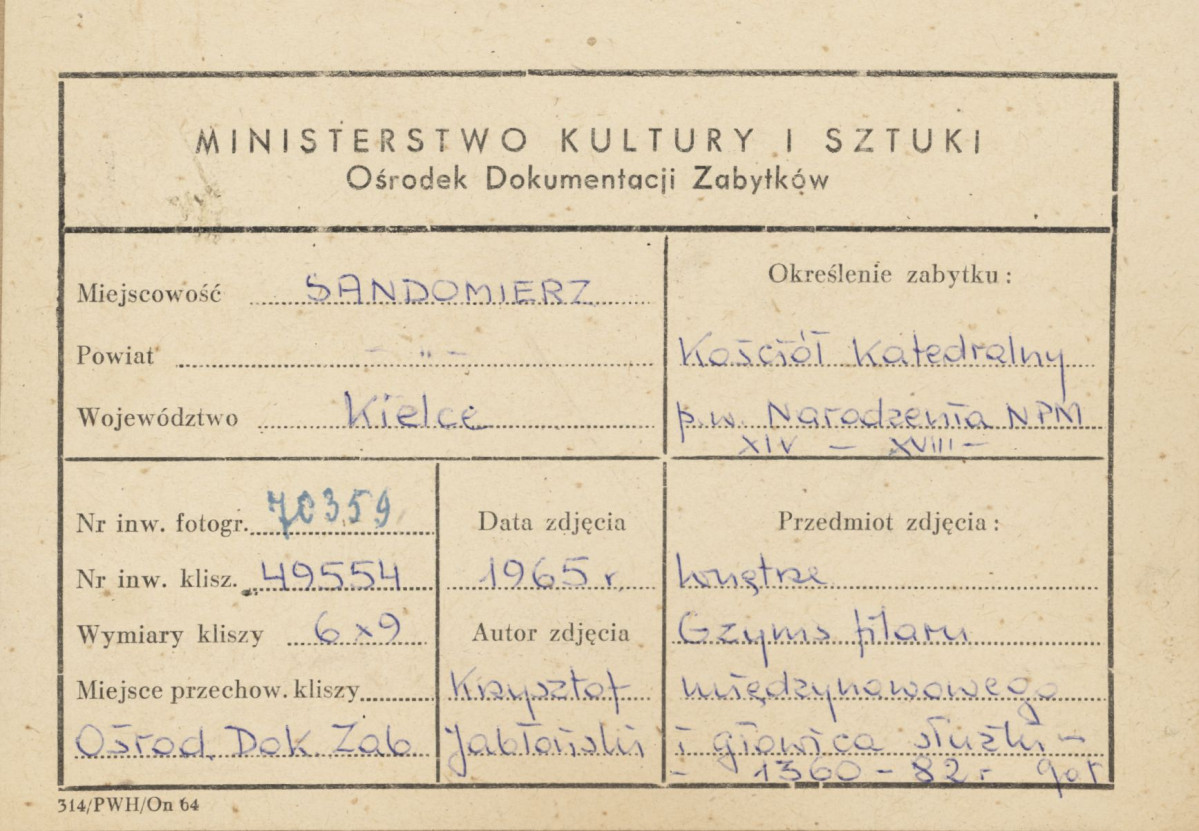 MINISTERSTWO KULTURY I SZTUKI
Ośrodek Dokumentacji Zabytków
Miejscowość SANDOMIERZ
Powiat - " -
Województwo Kielce
Określenie zabytku:
Kościół Katedralny
p.w. Narodzenia NPM
XIV - XVIII -
Nr inw. fotogr. 70359
Nr inw. klisz. 49554
Wymiary kliszy 6x9
Miejsce przechow. kliszy
Ośrod. Dok Zab
Data zdjęcia
1965 r.
Autor zdjęcia
Krzysztof
Jabłoński
Przedmiot zdjęcia:
Wnętrze
Gzyms filaru
międzynawowego
i głowica służki -
- 1360-82 r got
314/PWH/On 64